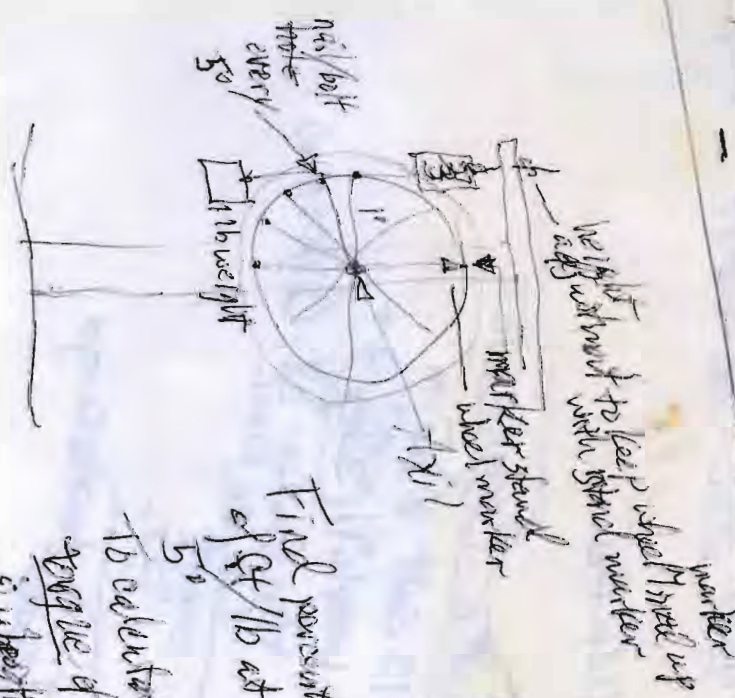 marker
height
adjustment to keep wheel lined up
with stand marker
marker stand
wheel marker
Axil
nail/bolt
hole
every
5°
1'
1 lb weight
Find
of ft/lb at
5°
To
torque